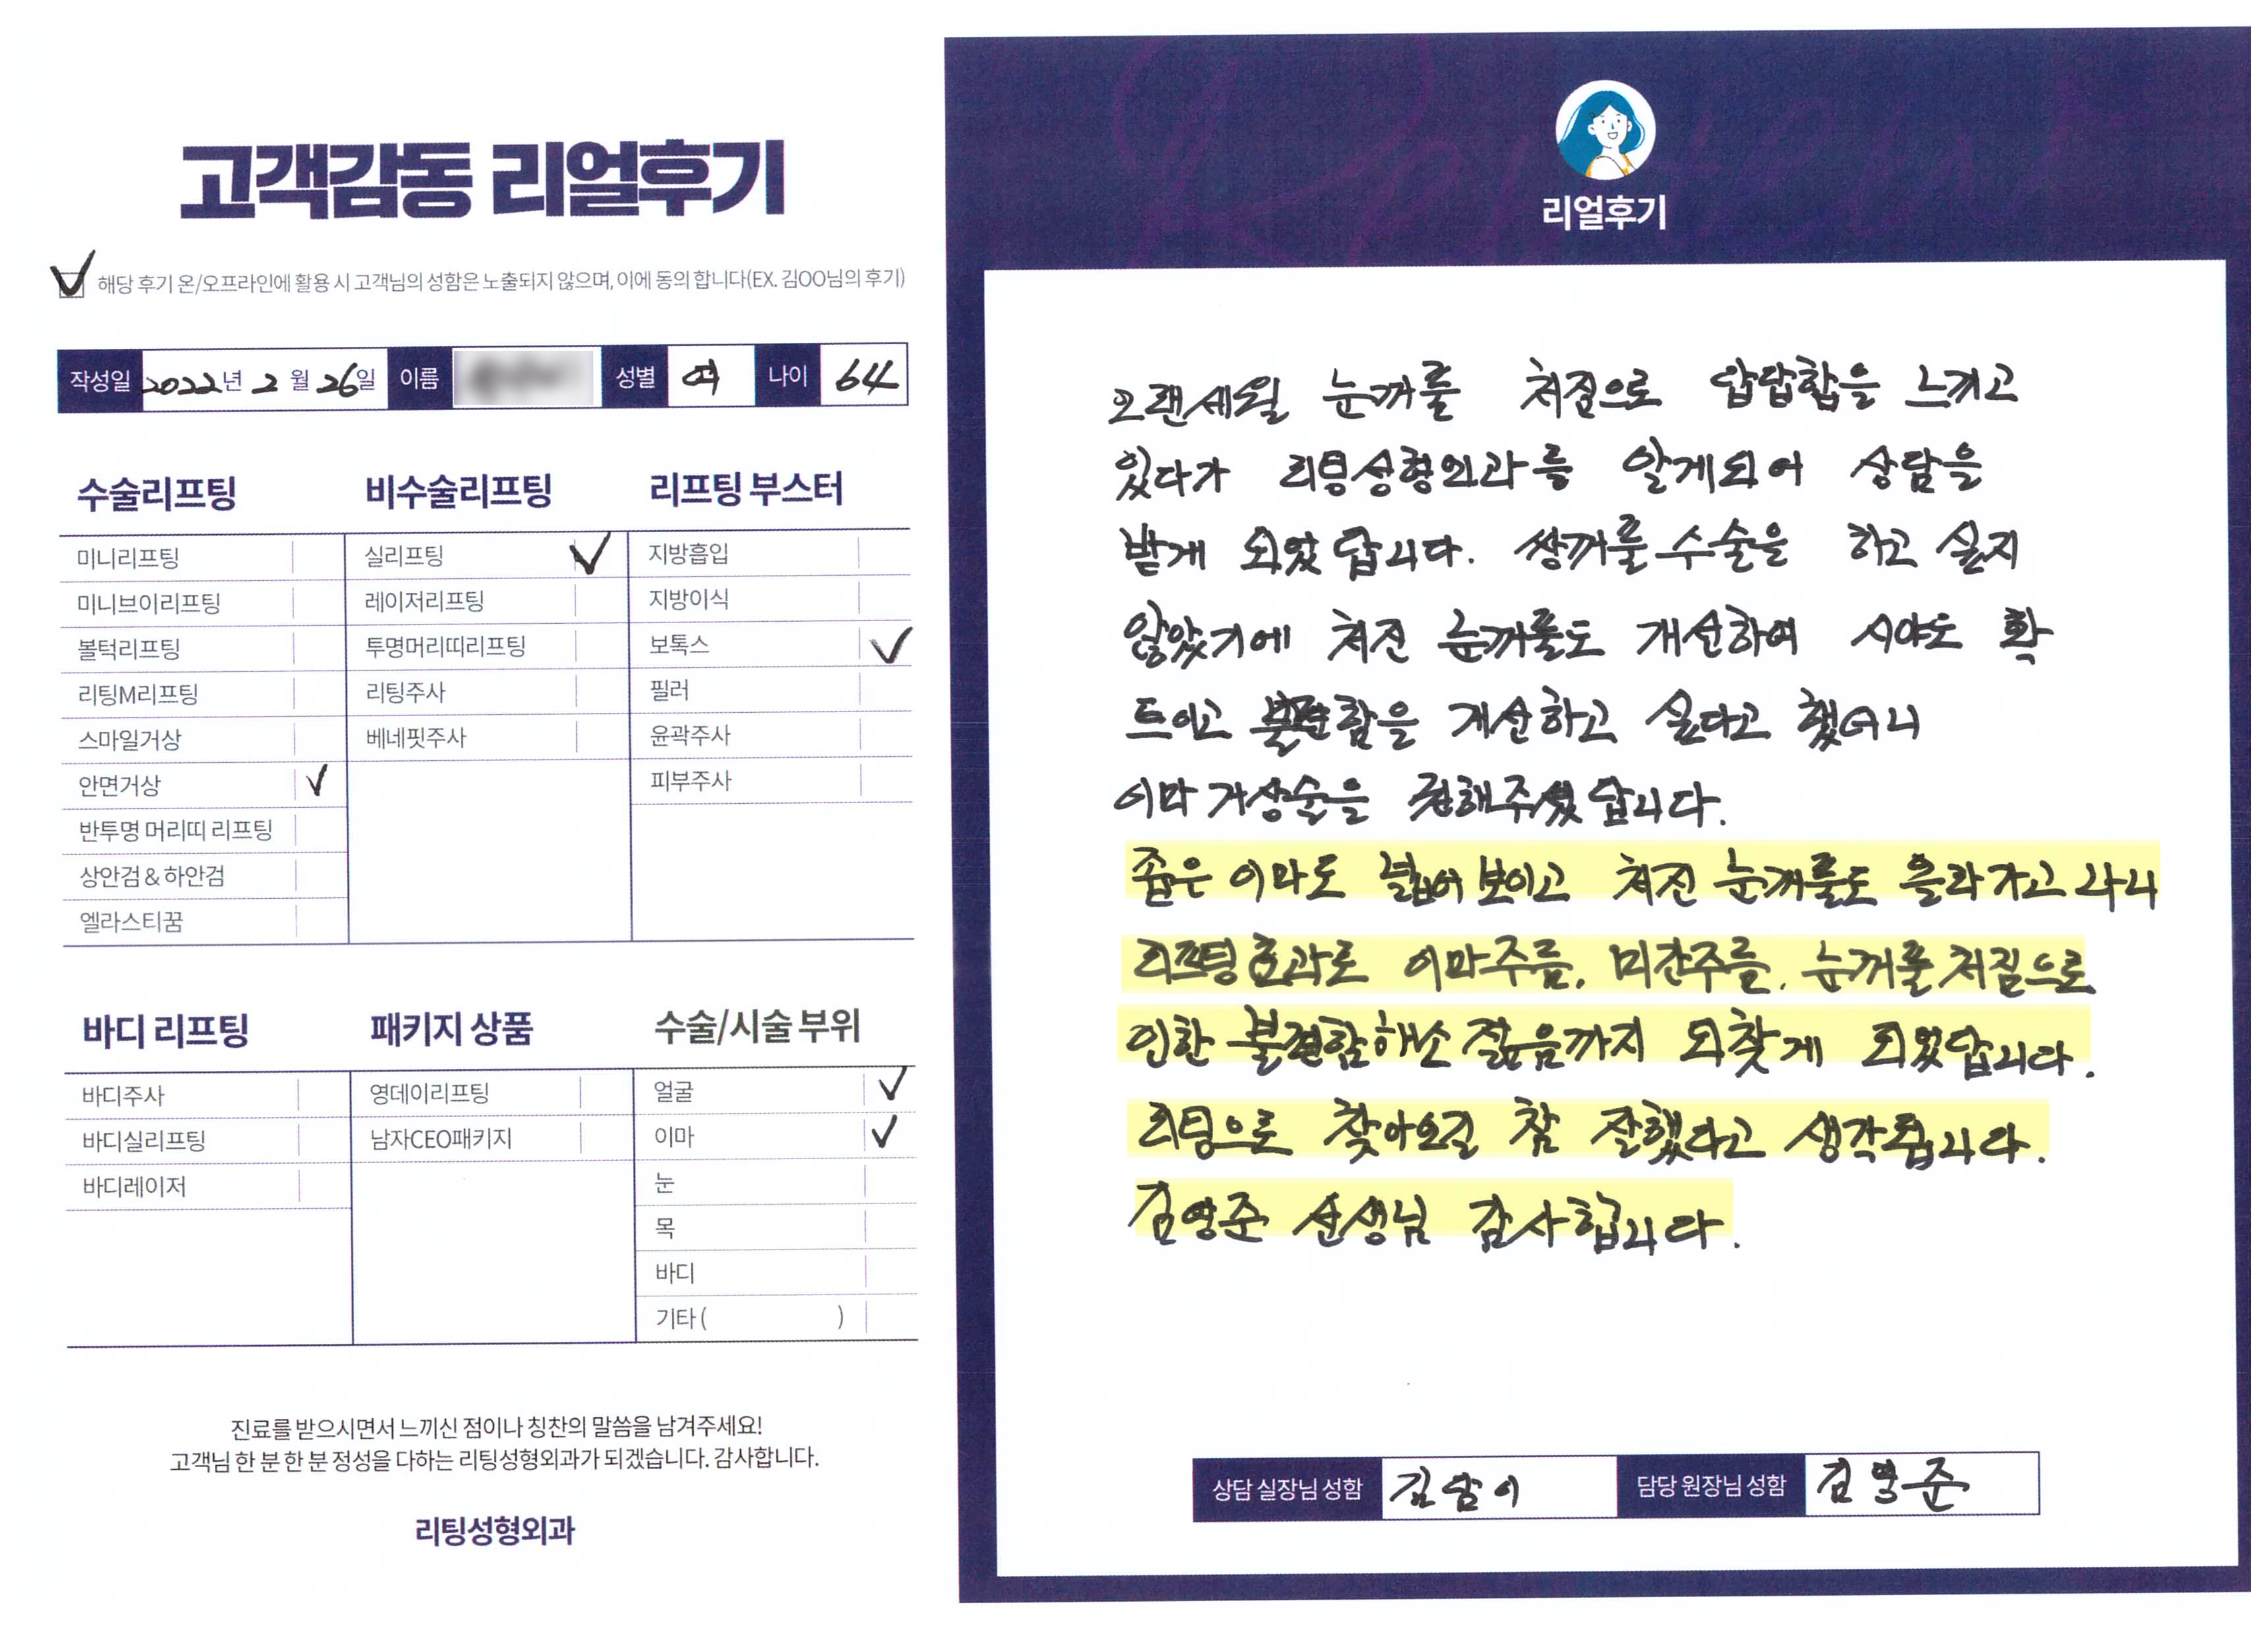 고객감동 리얼후기
해당 후기 온/오프라인에 활용 시 고객님의 성함은 노출되지 않으며, 이에 동의 합니다(EX. 김OO님의 후기)
작성일 2022년 2월 26일 이름 성별 여 나이 64
수술리프팅
미니리프팅
미니브이리프팅
볼턱리프팅
리팅M리프팅
스마일거상
안면거상
반투명 머리띠 리프팅
상안검 & 하안검
엘라스티꿈
비수술리프팅
실리프팅
레이저리프팅
투명머리띠리프팅
리팅주사
베네핏주사
리프팅 부스터
지방흡입
지방이식
보톡스
필러
윤곽주사
피부주사
바디 리프팅
바디주사
바디실리프팅
바디레이저
패키지 상품
영데이리프팅
남자CEO패키지
수술/시술 부위
얼굴
이마
눈
목
바디
기타 ( )
진료를 받으시면서 느끼신 점이나 칭찬의 말씀을 남겨주세요!
고객님 한 분 한 분 정성을 다하는 리팅성형외과가 되겠습니다. 감사합니다.
리팅성형외과
리얼후기
오랜세월 눈꺼풀 쳐짐으로 답답함을 느끼고
있다가 리팅성형외과를 알게되어 상담을
받게 되었답니다. 쌍꺼풀수술을 하고 싶지
않았기에 쳐진 눈꺼풀도 개선하여 시야도 확
트이고 불편함을 개선하고 싶다고 했더니
이마거상술을 권해주셨답니다.
좁은 이마도 넓어 보이고 쳐진 눈꺼풀도 올라가고 나니
리프팅효과로 이마주름, 미간주름, 눈꺼풀 쳐짐으로
인한 불편함해소 젊음까지 되찾게 되었답니다.
리팅으로 찾아오길 참 잘했다고 생각됩니다.
김영준 선생님 감사합니다.
상담 실장님 성함 담당 원장님 성함 김영준